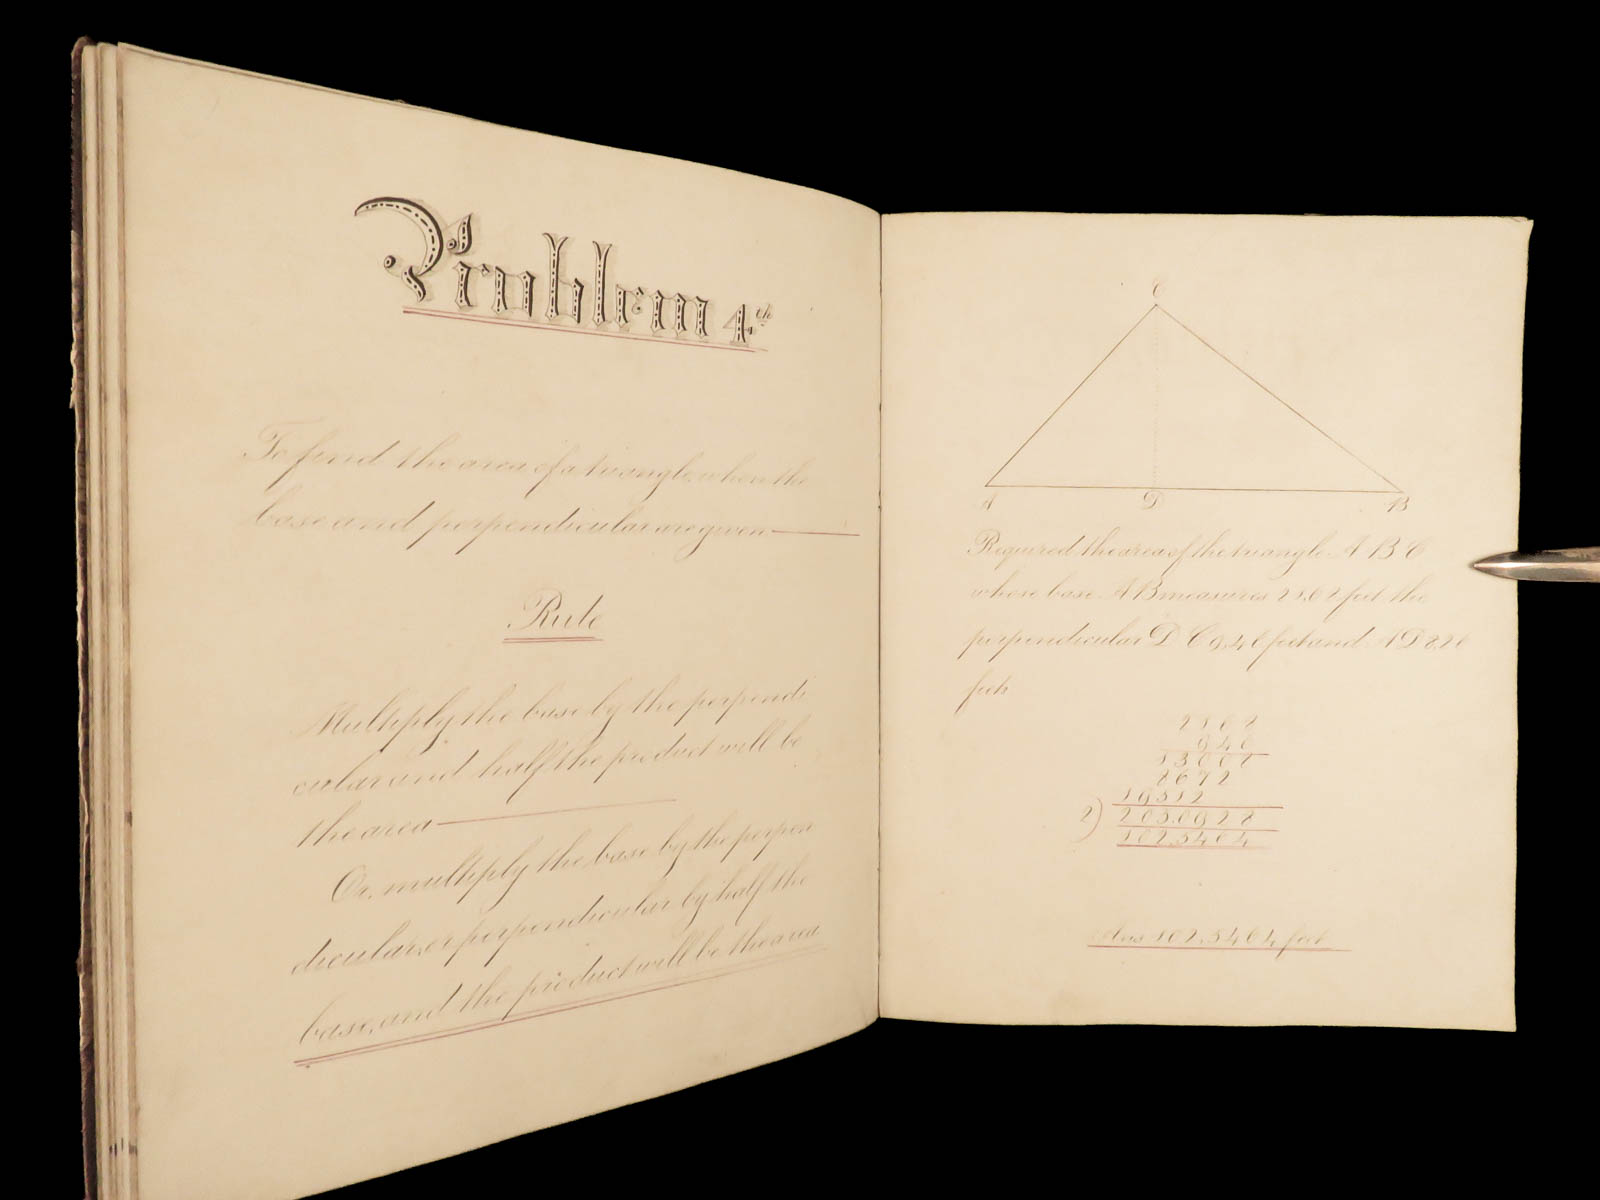 Problem 4th
To find the area of a triangle when the
base and perpendicular are given
Rule
Multiply the base by the perpendi
cular and half the product will be
the area
Or, multiply the base by the perpen
dicular, or perpendicular by half the
base, and the product will be the area
C
A D B
Required the area of the triangle A B C
whose base A B measures 21,68 feet the
perpendicular D C 9,46 feet and A D
feet
2168
946
13008
8672
19512
2) 205.0928
102.5464
Ans 102.5464 feet